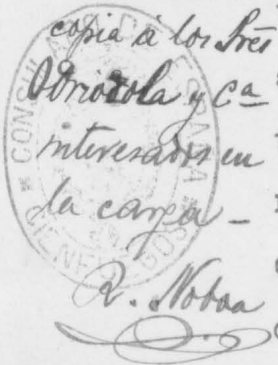 copia á los Sres
Obriozola y Ca
interesados en
la carga –
R. Novoa
CONSULADO DE ESPAÑA